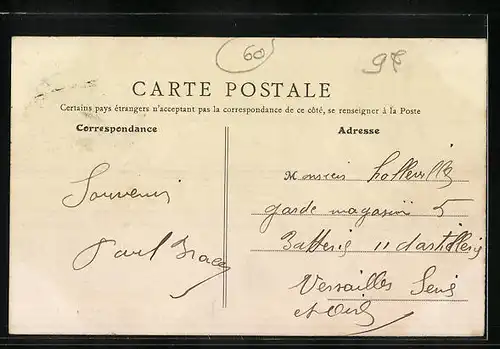 60
CARTE POSTALE
Certains pays étrangers n'acceptant pas la correspondance de ce côté, se renseigner à la Poste
Correspondance
Adresse
Souvenir
Paul
Monsieur
garde magasin 5
Batterie 11 d'artillerie
Versailles Seine
et Oise